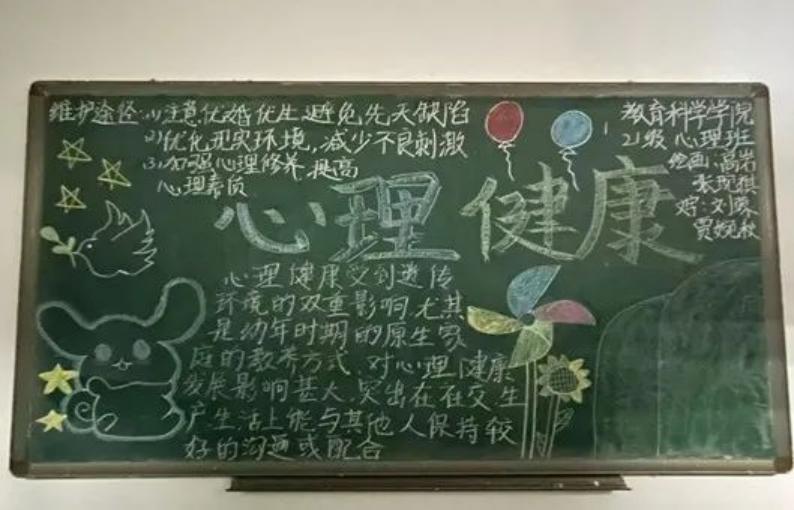 维护途径:(1)注意优婚优生,避免先天缺陷
(2)优化现实环境,减少不良刺激
(3)加强心理修养,提高
心理素质
教育科学学院
21级 心理班
绘画:高岩
贾婉秋
心理健康
心理健康受到遗传
环境的双重影响,尤其
是幼年时期的原生家
庭的教养方式,对心理健康
发展影响甚大,突出在在交生
产生活上能与其他人保持较
好的沟通或配合